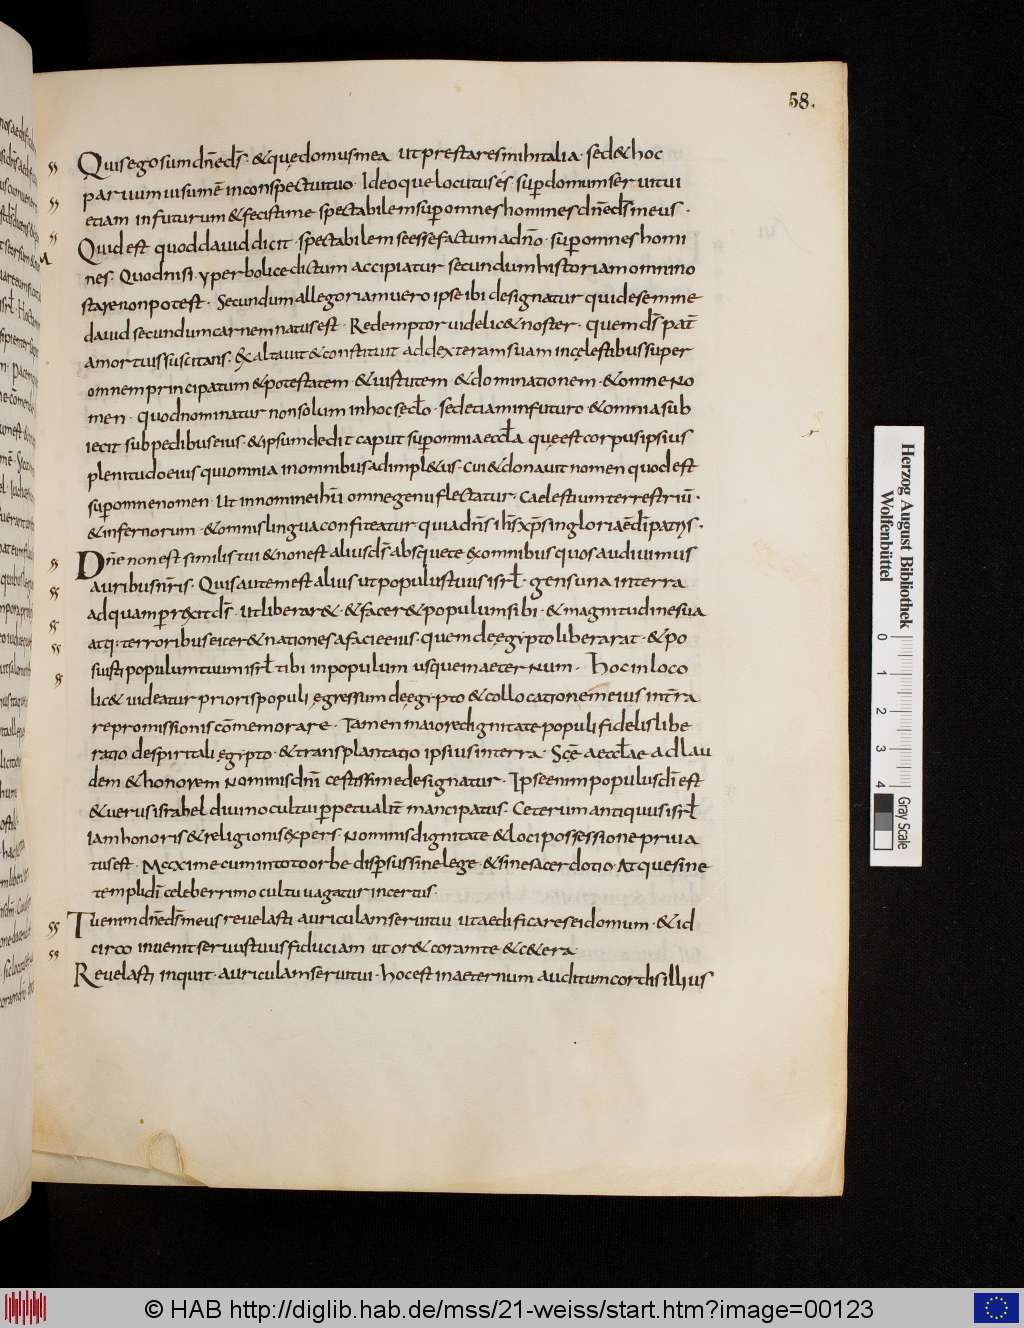 58.
Quis ego sum dn̄e dš. & quę domus mea ut prestares mihi talia. sed & hoc
paruum uisum ē in conspectu tuo. Ideoque locutus és sup̄ domum serui tui
etiam in futurum & fecisti me spectabilem sup̄ omnes homines dn̄e dš meus.
Quid est quod dauid dicit. spectabilem se esse factum a dn̄o. sup̄ omnes homi
nes. Quod nisi. yperbolice dictum accipiatur secundum historiam omnino
stare non potest. Secundum allegoriam uero ipse ibi designatur qui de semine
dauid secundum carnem natus est. Redemptor uidelic& noster. quem dš pat̄
a mortuis suscitans. Exaltauit & constituit ad dexteram suam in cęlestibus super
omnem principatum & potestatem. & uirtutem & dominationem. & omne No
men. quod nominatur non solum in hoc sec̄lo. sed etiam in futuro & omnia sub
iecit sub pedibus eius. & ipsum dedit caput sup̄ omnia eccl̄a quę est corpus ipsius
plenitudo eius qui omnia in omnibus adimpl&us. Cui & donauit nomen quod est
sup̄ omne nomen. Ut in nomine ih̄u omne genu flectatur. Caelestium terrestriū.
& infernorum. & omnis lingua confiteatur quia dn̄s ih̄s xp̄s in gloria ē dī patris.
Dn̄e non est similis tui & non est alius dš absque te ex omnibus quos audiuimus
auribus nr̄is. Quis autem est alius ut populus tuus isrl̄. gens una in terra
ad quam perrexit dš. ut liberar&. & facer& populum sibi. & magnitudine sua
atq: terroribus eicer& nationes a facie eius. quem de ęgypto liberarat. & po
suisti populum tuum isrl̄ tibi in populum usque in aeterNum. Hoc in loco
lic& uideatur prioris populi ęgressum de ęgypto & collocationem eius in t̄ra
repromissionis cōmemorare. Tamen maiore dignitate populi fidelis libe
ratio de spiritali ęgypto. & transplantatio ipsius in terra. Scę̄ aeccl̄ae ad lau
dem & honorem Nominis dn̄i certissime designatur. Ipse enim populus dī est
& uerus israhel diuino cultui perpetualit̄ mancipatus. Ceterum antiquus isrl̄
Iam honoris & religionis expers. Nominis dignitate & loci possessione priua
tus est. Maxime cum in toto orbe disp̄sus sine lege. & sine sacerdotio. Atque sine
templi dī celeberrimo cultu uagatur incertus.
Tu enim dn̄e dš meus reuelasti auriculam serui tui ut aedificares ei domum. & id
circo inuenit seruus tuus fiduciam ut or& coram te & c&era.
Reuelasti inquit. auriculam serui tui. hoc est in aeternum auditum cordis illius
Herzog August Bibliothek
Wolfenbüttel
0 1 2 3 4
Gray Scale
© HAB http://diglib.hab.de/mss/21-weiss/start.htm?image=00123